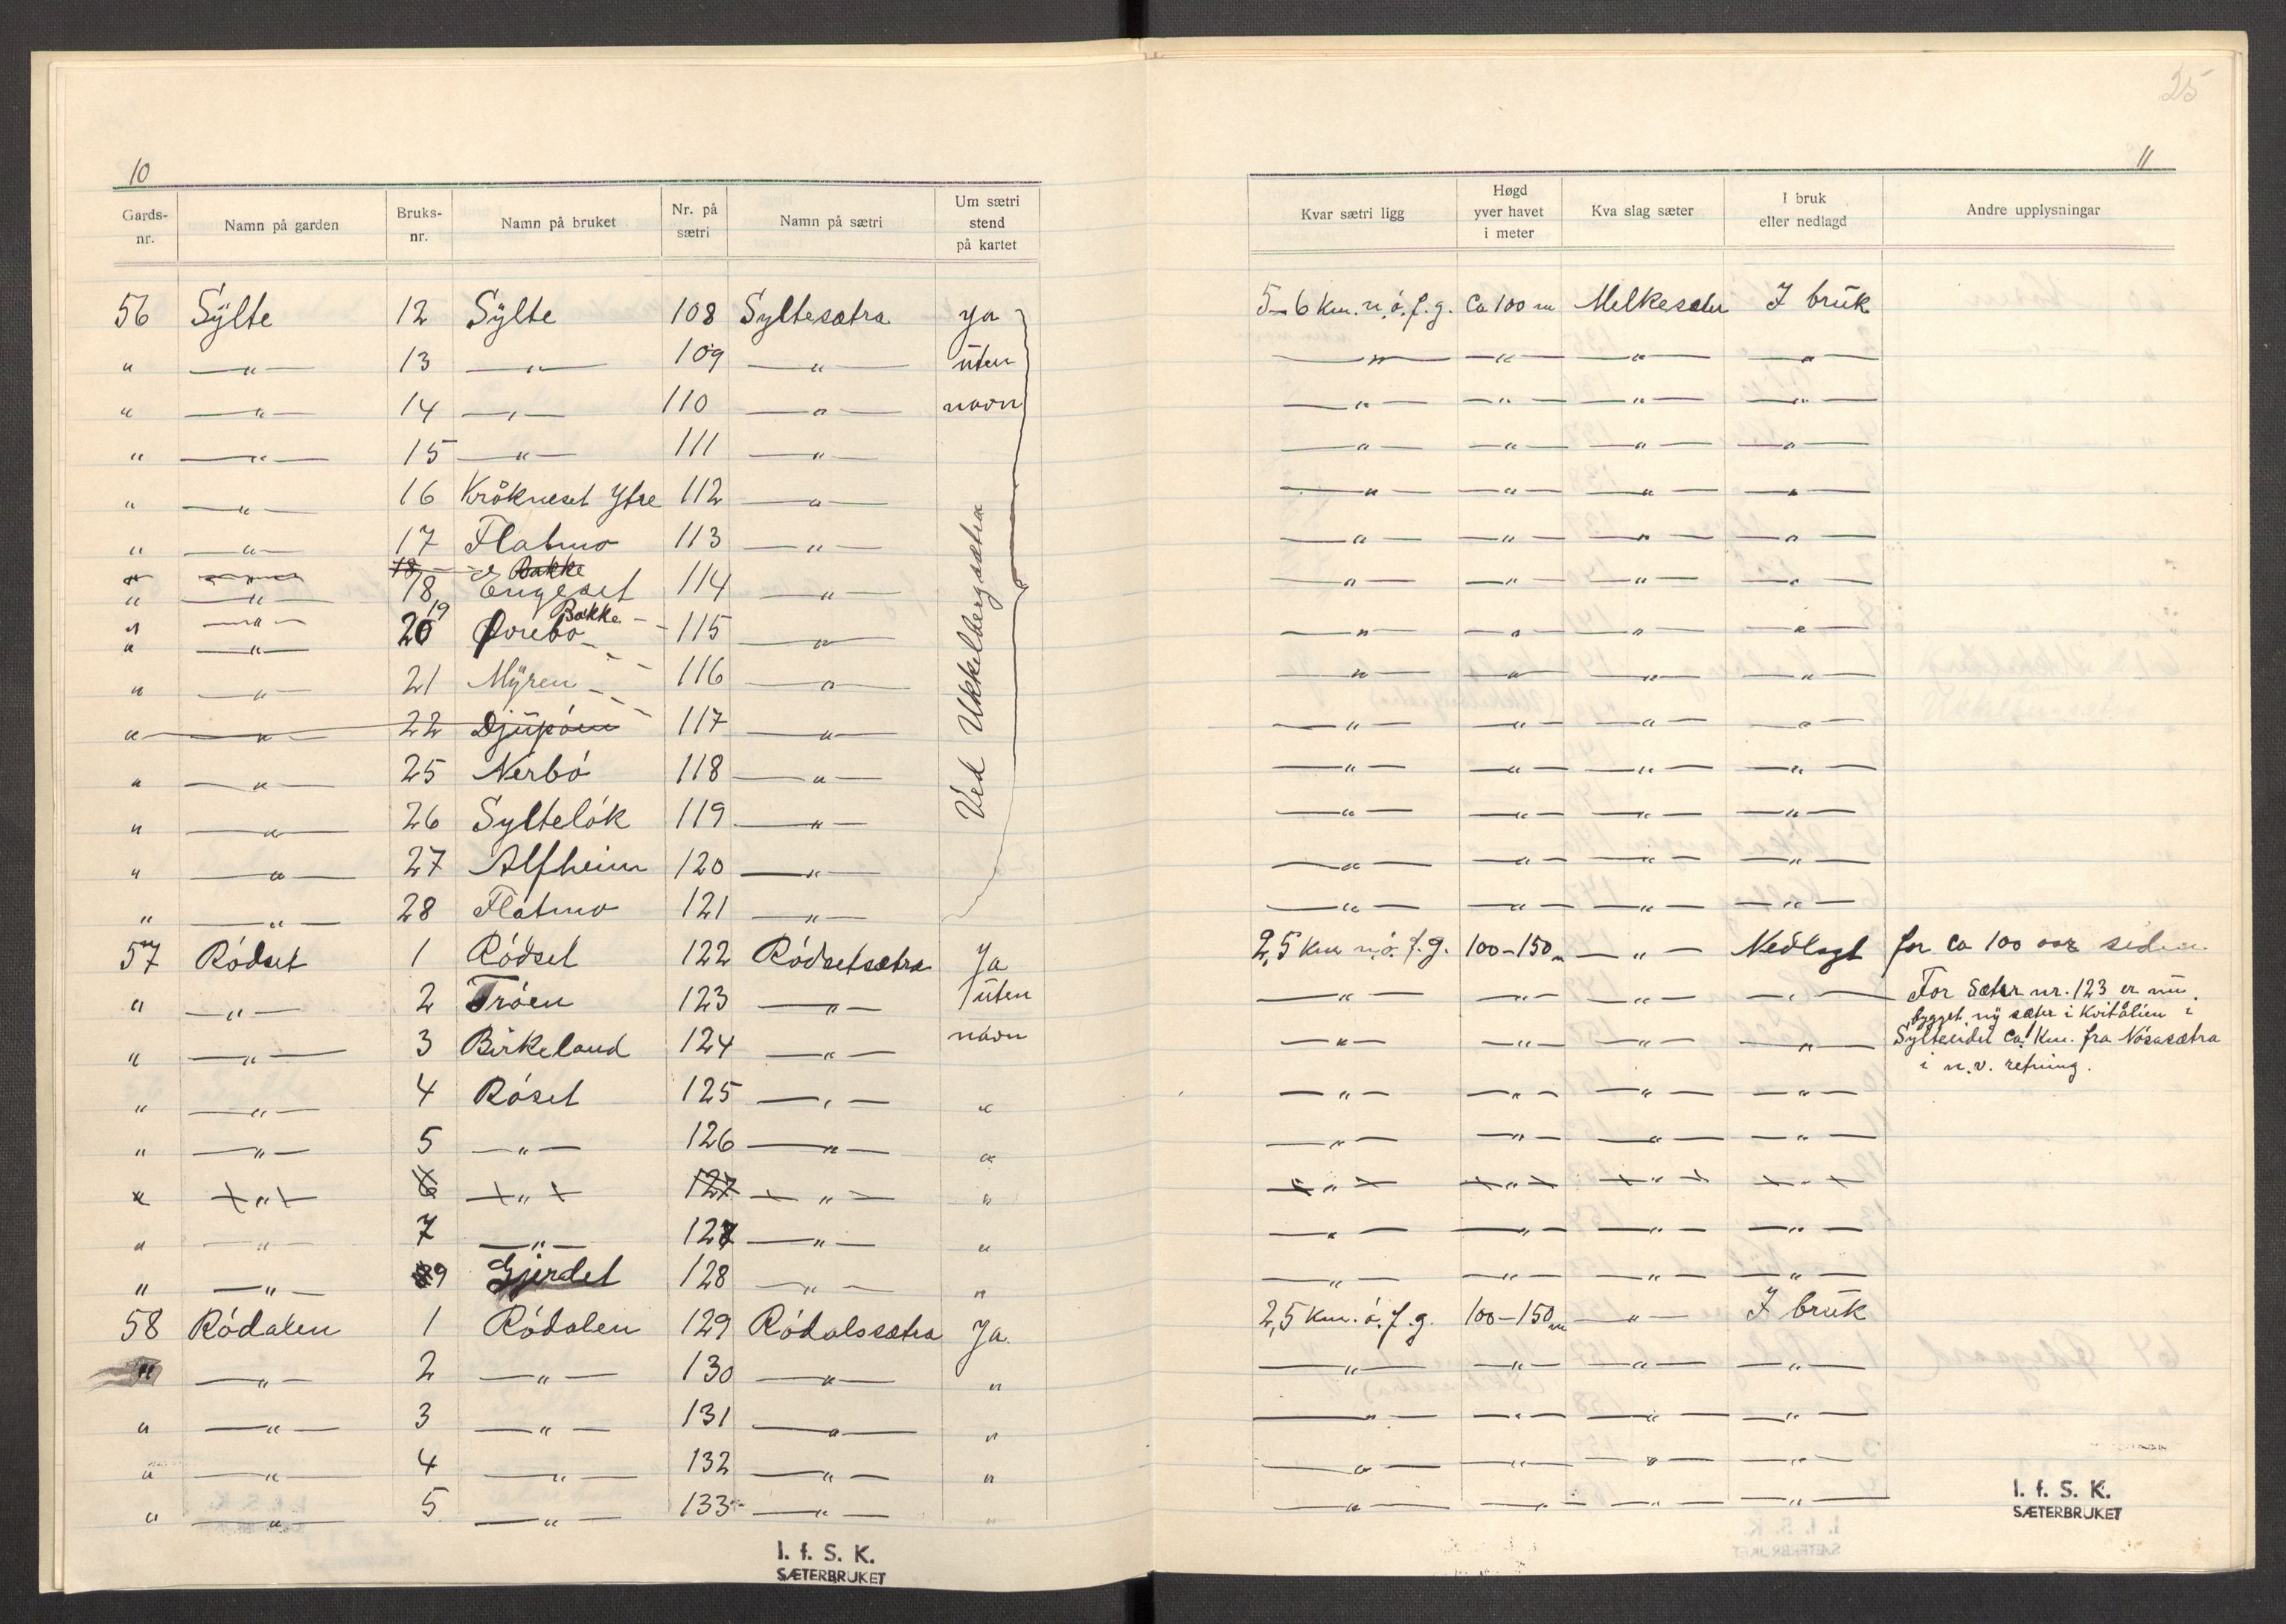 25
10
11
Gards-nr. | Namn på garden | Bruks-nr. | Namn på bruket | Nr. på sætri | Namn på sætri | Um sætri stend på kartet | Kvar sætri ligg | Høgd yver havet i meter | Kva slag sæter | I bruk eller nedlagd | Andre upplysningar
56 | Sylte | 12 | Sylte | 108 | Syltesætra | Ja | 5–6 km. n.ö.f.g. | Ca 100 m | Melkesæter | I bruk
" | —"— | 13 | —"— | 109 | —"— | uten | —"— | —"— | —"— | —"—
" | —"— | 14 | —"— | 110 | —"— | navn | —"— | —"— | —"— | —"—
" | —"— | 15 | —"— | 111 | —"— | | —"— | —"— | —"— | —"—
" | —"— | 16 | Kråkneset Ytre | 112 | —"— | | —"— | —"— | —"— | —"—
" | —"— | 17 | Flatmo | 113 | —"— | | —"— | —"— | —"— | —"—
" | —"— | 18 | Bakke
" | —"— | 18 | Engeset | 114 | —"— | | —"— | —"— | —"— | —"—
" | —"— | 19 | Bakke
" | —"— | 20 | Örebö | 115 | —"— | | —"— | —"— | —"— | —"—
" | —"— | 21 | Myren | 116 | —"— | | —"— | —"— | —"— | —"—
" | —"— | 22 | Djupöen | 117 | —"— | | —"— | —"— | —"— | —"—
" | —"— | 25 | Nerbö | 118 | —"— | | —"— | —"— | —"— | —"—
" | —"— | 26 | Sylteløk | 119 | —"— | | —"— | —"— | —"— | —"—
" | —"— | 27 | Alfheim | 120 | —"— | | —"— | —"— | —"— | —"—
" | —"— | 28 | Flatmo | 121 | —"— | | —"— | —"— | —"— | —"—
Ved Ukkelbergsætra
57 | Rödset | 1 | Rödset | 122 | Rödsetsætra | Ja | 2,5 km n.ö.f.g. | 100–150 m | —"— | Nedlagt | for ca 100 aar siden
" | —"— | 2 | Tröen | 123 | —"— | uten | —"— | —"— | —"— | —"— | For Sæter nr. 123 er nu
bygget ny sæter i Kvitålien i
" | —"— | 3 | Birkeland | 124 | —"— | navn | —"— | —"— | —"— | —"— | Sylteeidet ca 1 km. fra Nösasætra
i n.v. retning.
" | —"— | 4 | Röset | 125 | —"— | " | —"— | —"— | —"— | —"—
" | —"— | 5 | —"— | 126 | —"— | " | —"— | —"— | —"— | —"—
" | —"— | 6 | —"— | 127 | —"— | " | —"— | —"— | —"— | —"—
" | —"— | 7 | —"— | 127 | —"— | " | —"— | —"— | —"— | —"—
" | —"— | 9 | Gjerdet | 128 | —"— | " | —"— | —"— | —"— | —"—
58 | Rödalen | 1 | Rödalen | 129 | Rödalssætra | Ja. | 2,5 km. ö.f.g. | 100–150 m | —"— | I bruk
" | —"— | 2 | —"— | 130 | —"— | " | —"— | —"— | —"— | —"—
" | —"— | 3 | —"— | 131 | —"— | " | —"— | —"— | —"— | —"—
" | —"— | 4 | —"— | 132 | —"— | " | —"— | —"— | —"— | —"—
" | —"— | 5 | —"— | 133 | —"— | " | —"— | —"— | —"— | —"—
I. f. S. K.
SÆTERBRUKET
I. f. S. K.
SÆTERBRUKET